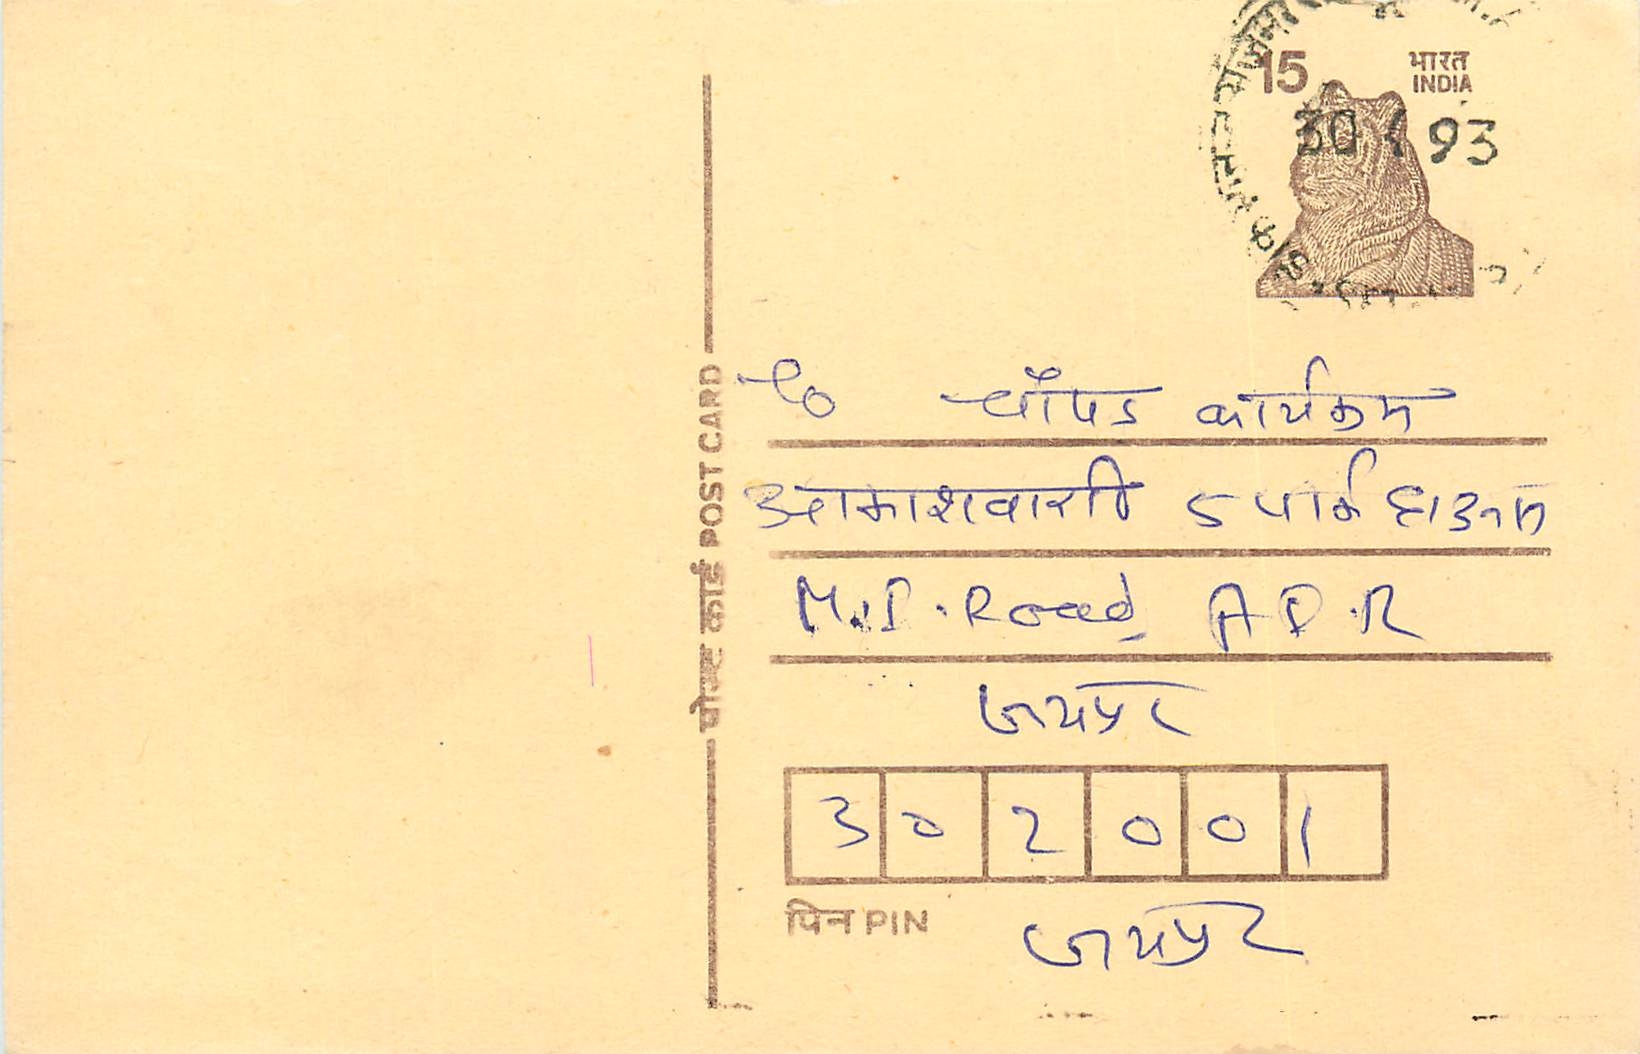 15 भारत
INDIA
30 1 93
पोस्ट कार्ड POST CARD
चौपड कार्यक्रम
आकाशवाणी 5 पार्क हाऊस
M.I. Road
जयपुर
302001
पिन PIN
जयपुर